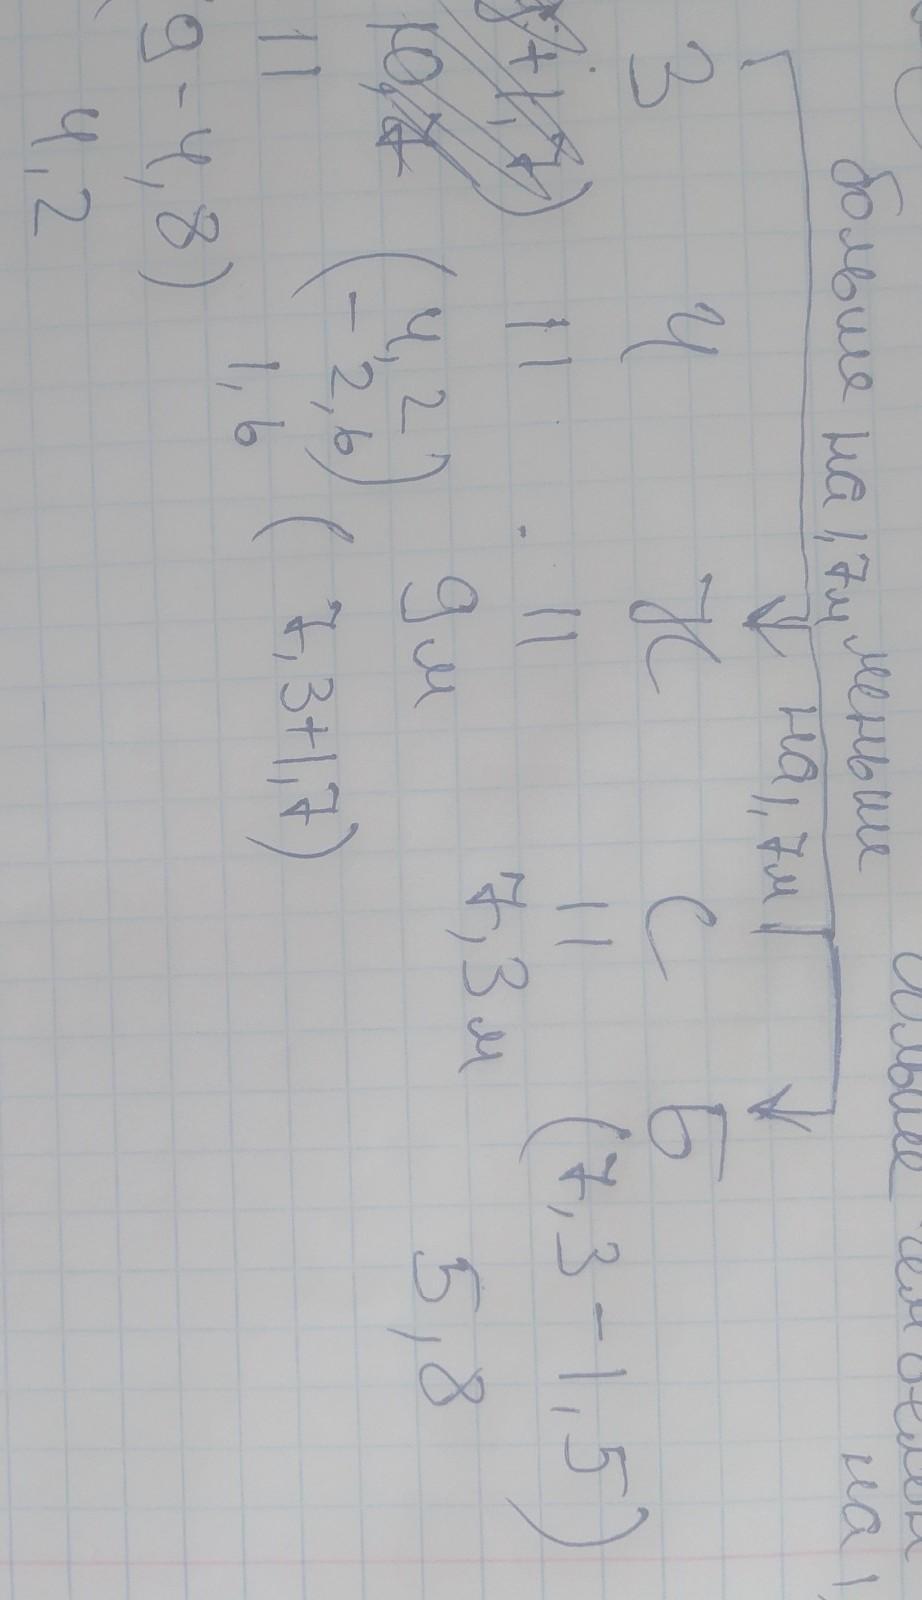 больше чем
на 1,
больше на 1,7м, меньше
на 1,7м
З Ч Ж С Б
11 11 11 (7,3-1,5)
10,7 (4,2 9м 7,3м 5,8
-2,6)
11 1,6 (7,3+1,7)
(9-4,8)
4,2